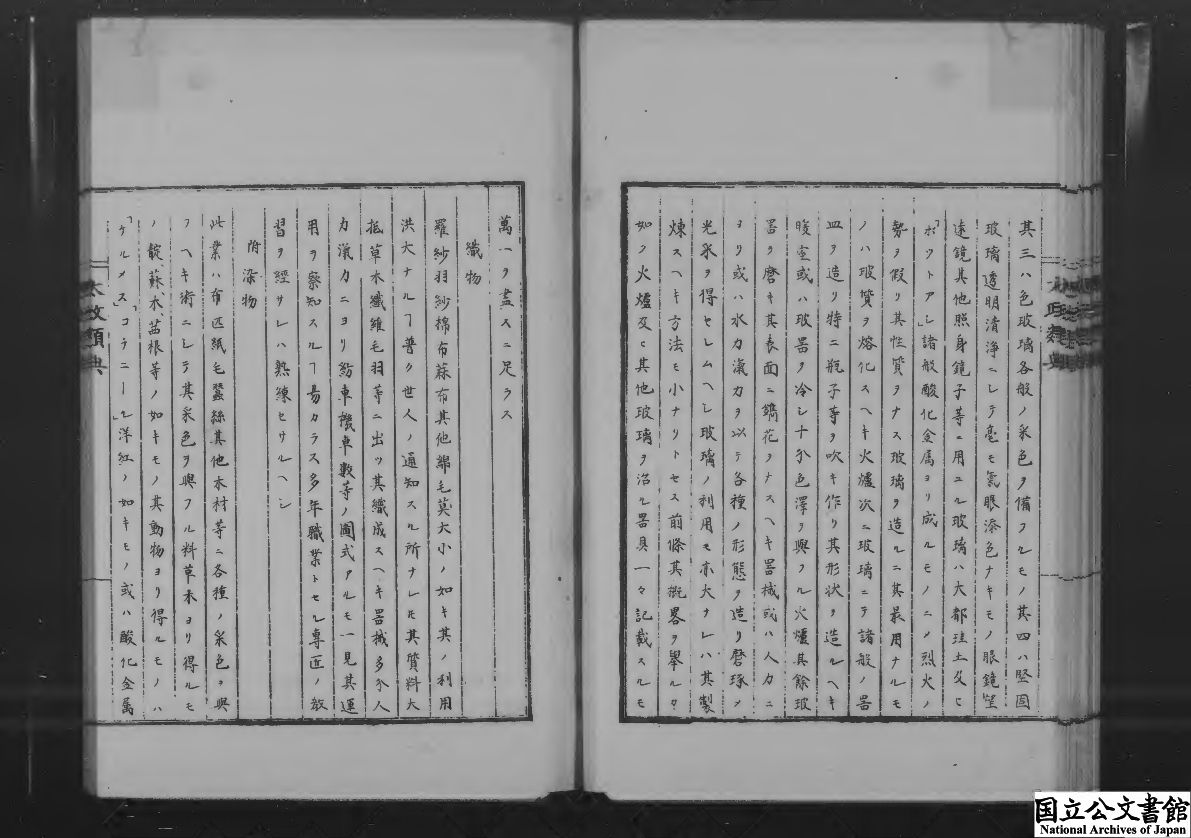 其三ハ色玻璃各般ノ采色ヲ備フルモノ其四ハ堅固
玻璃透明清浄ニシテ毫モ氣眼添色ナキモノ眼鏡望
遠鏡其他照身鏡子等ニ用ユル玻璃ハ大都珪土及ヒ
「ポットアシ」諸般酸化金属ヨリ成ルモノニメ烈火ノ
勢ヲ假リ其性質ヲナス玻璃ヲ造ルニ其最用ナルモ
ノハ玻質ヲ熔化スヘキ火爐次ニ玻璃ニテ諸般ノ器
皿ヲ造リ特ニ瓶子等ヲ吹キ作リ其形状ヲ造ルヘキ
暖室或ハ玻器ヲ冷シ十分色澤ヲ與フル火爐其餘玻
器ヲ磨キ其表面ニ鐫花ヲナスヘキ器械或ハ人力ニ
ヨリ或ハ水力滊力ヲ以テ各種ノ形態ヲ造リ磨琢メ
光采ヲ得セシムヘシ玻璃ノ利用モ亦大ナレハ其製
煉スヘキ方法モ小ナリトセス前條其概畧ヲ舉ルカ
如ク火爐及ヒ其他玻璃ヲ治ル器具一々記載スルモ
萬一ヲ盡スニ足ラス
織物
羅紗羽紗棉布蔴布其他綿毛莫大小ノ如キ其ノ利用
洪大ナルヿ普ク世人ノ通知スル所ナレ𪜈其質料大
抵草木纖維毛羽等ニ出ツ其織成スヘキ器械多分人
力滊力ニヨリ紡車機車数等ノ圖式アルモ一見其運
用ヲ察知スルヿ易カラス多年職業トセル専匠ノ教
習ヲ經サレハ熟練セサルヘシ
附染物
此業ハ布匹紙毛蠶絲其他木材等ニ各種ノ采色ヲ與
フヘキ術ニシテ其采色ヲ與フル料草木ヨリ得ルモ
ノ靛蘇木茜根等ノ如キモノ其動物ヨリ得ルモノハ
「ケルメス」「コラニール」洋紅ノ如キモノ或ハ酸化金属
太政類典
国立公文書館
National Archives of Japan